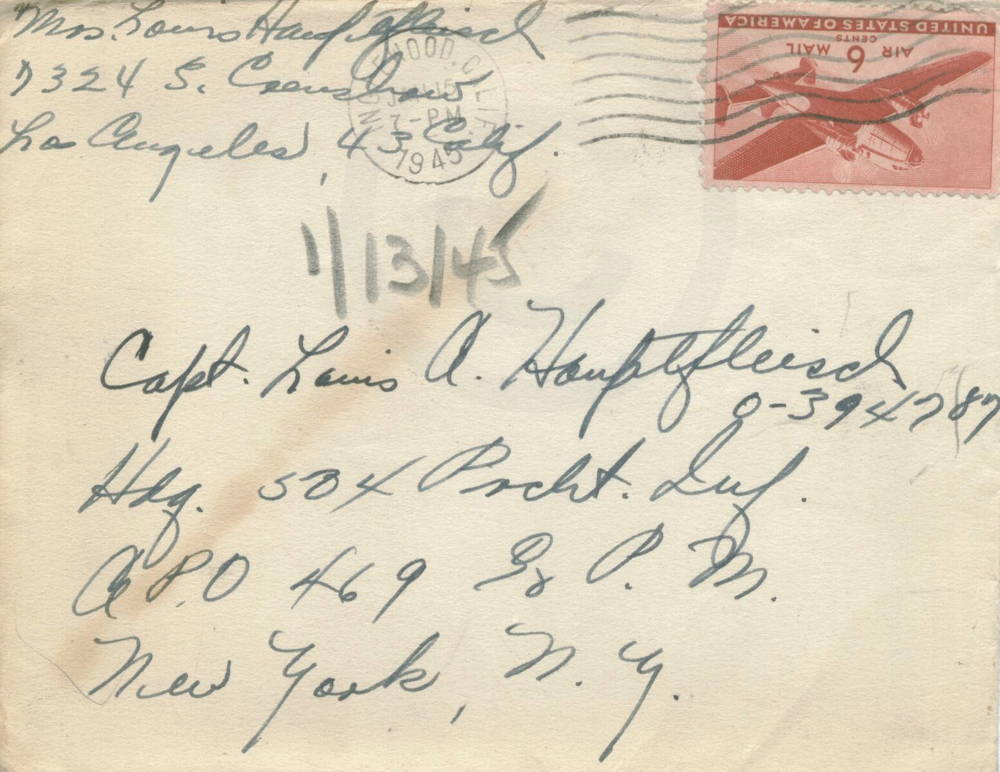 Mrs. Louis Hauptfleisch
7324 S. Crenshaw
Los Angeles, 43 Calif.
INGLEWOOD, CALIF.
15
7-PM
1945
UNITED STATES OF AMERICA
6 CENTS
AIR MAIL
1/13/45
Capt. Louis A. Hauptfleisch
O-394787
Hdq. 504 Prcht. Inf.
A.P.O 469 % P. M.
New York, N. Y.